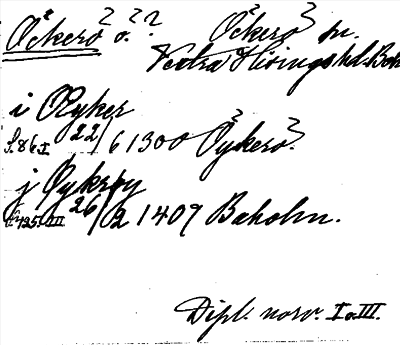 Öckerö ö. Öckerö sn.
Vestra Hisings hd. Boh
i Øyker
S. 86 I 22/6 1300 Öykerö.
j Øykrøy
S. 425 III 26/2 1409 Baholm.
Dipl. norv. I o. III.